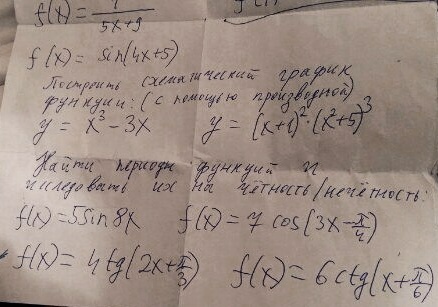 f(x) = / 5x+9
f(x) = sin(4x+5)
Построить схематический график
функции: (с помощью производной)
y = x³ - 3x y = (x+1)² · (x²+5)³
Найти периоды функций и
исследовать их на чётность/нечётность:
f(x) = 5 sin 8x f(x) = 7 cos(3x - π/4)
f(x) = 4 tg(2x + π/3) f(x) = 6 ctg(x + π/6)